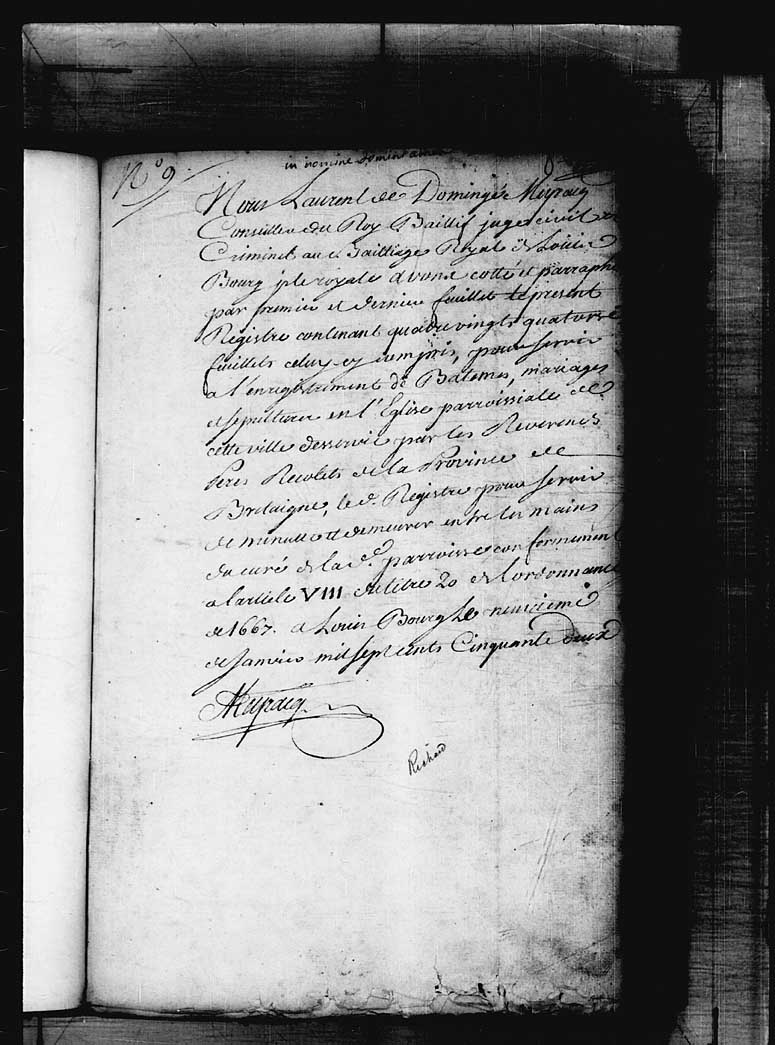 N.º 9.
in nomine domini amen
Nous Laurent de Domingé Meyracq
Conseiller du Roy Baillif juge civil et
Criminel au Bailliage Royal de Louis
Bourg isle royale avons cotté et parraphé
par premier et dernier feuillet le present
Registre continant quatre vingts quatorze
feuillets celuy cy compris, pour servir
a l'enregistrement de Batemes, mariages
et sepultures en l'Eglise parroissiale de
cette ville desservie par les Reverends
Peres Recolets de la Province de
Bretaigne, le d. Registre pour servir
de minutte et demeurer entre les mains
du curé de la de. parroisse conformement
a l'article VIII du titre 20 de l'ordonnance
de 1667. a Louis Bourg Le neuvieme
de Janvier mil sept cents Cinquante deux
Meyracq
Richard